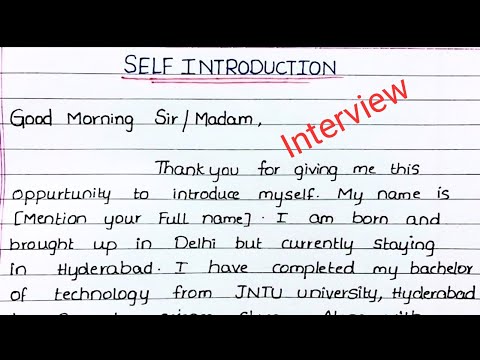 SELF INTRODUCTION
Interview
Good Morning Sir/Madam,
Thank you for giving me this
oppurtunity to introduce myself. My name is
[Mention your Full name]. I am born and
brought up in Delhi but currently staying
in Hyderabad. I have completed my bachelor
of technology from JNTU university, Hyderabad